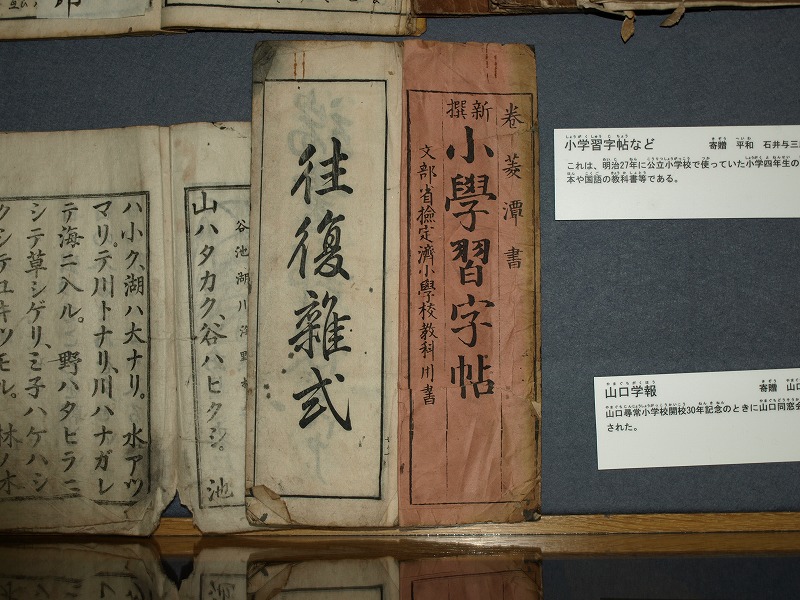 小学習字帖など 寄贈 平和 石井与三
これは、明治27年に公立小学校で使っていた小学四年生の
本や国語の教科書等である。
山口学報 寄贈 山口
山口尋常小学校開校30年記念のときに山口同窓会
された。
卷菱潭書
新撰
小學習字帖
文部省檢定濟小學校教科用書
往復雜式
谷池湖川海野
山ハタカク、谷ハヒクシ。池
ハ小ク、湖ハ大ナリ。水アツ
マリテ川トナリ、川ハナガレ
テ海ニ入ル。野ハタヒラニ
シテ草シゲリ、ミ子ハケハシ
クシテユキツモル。林ノ木